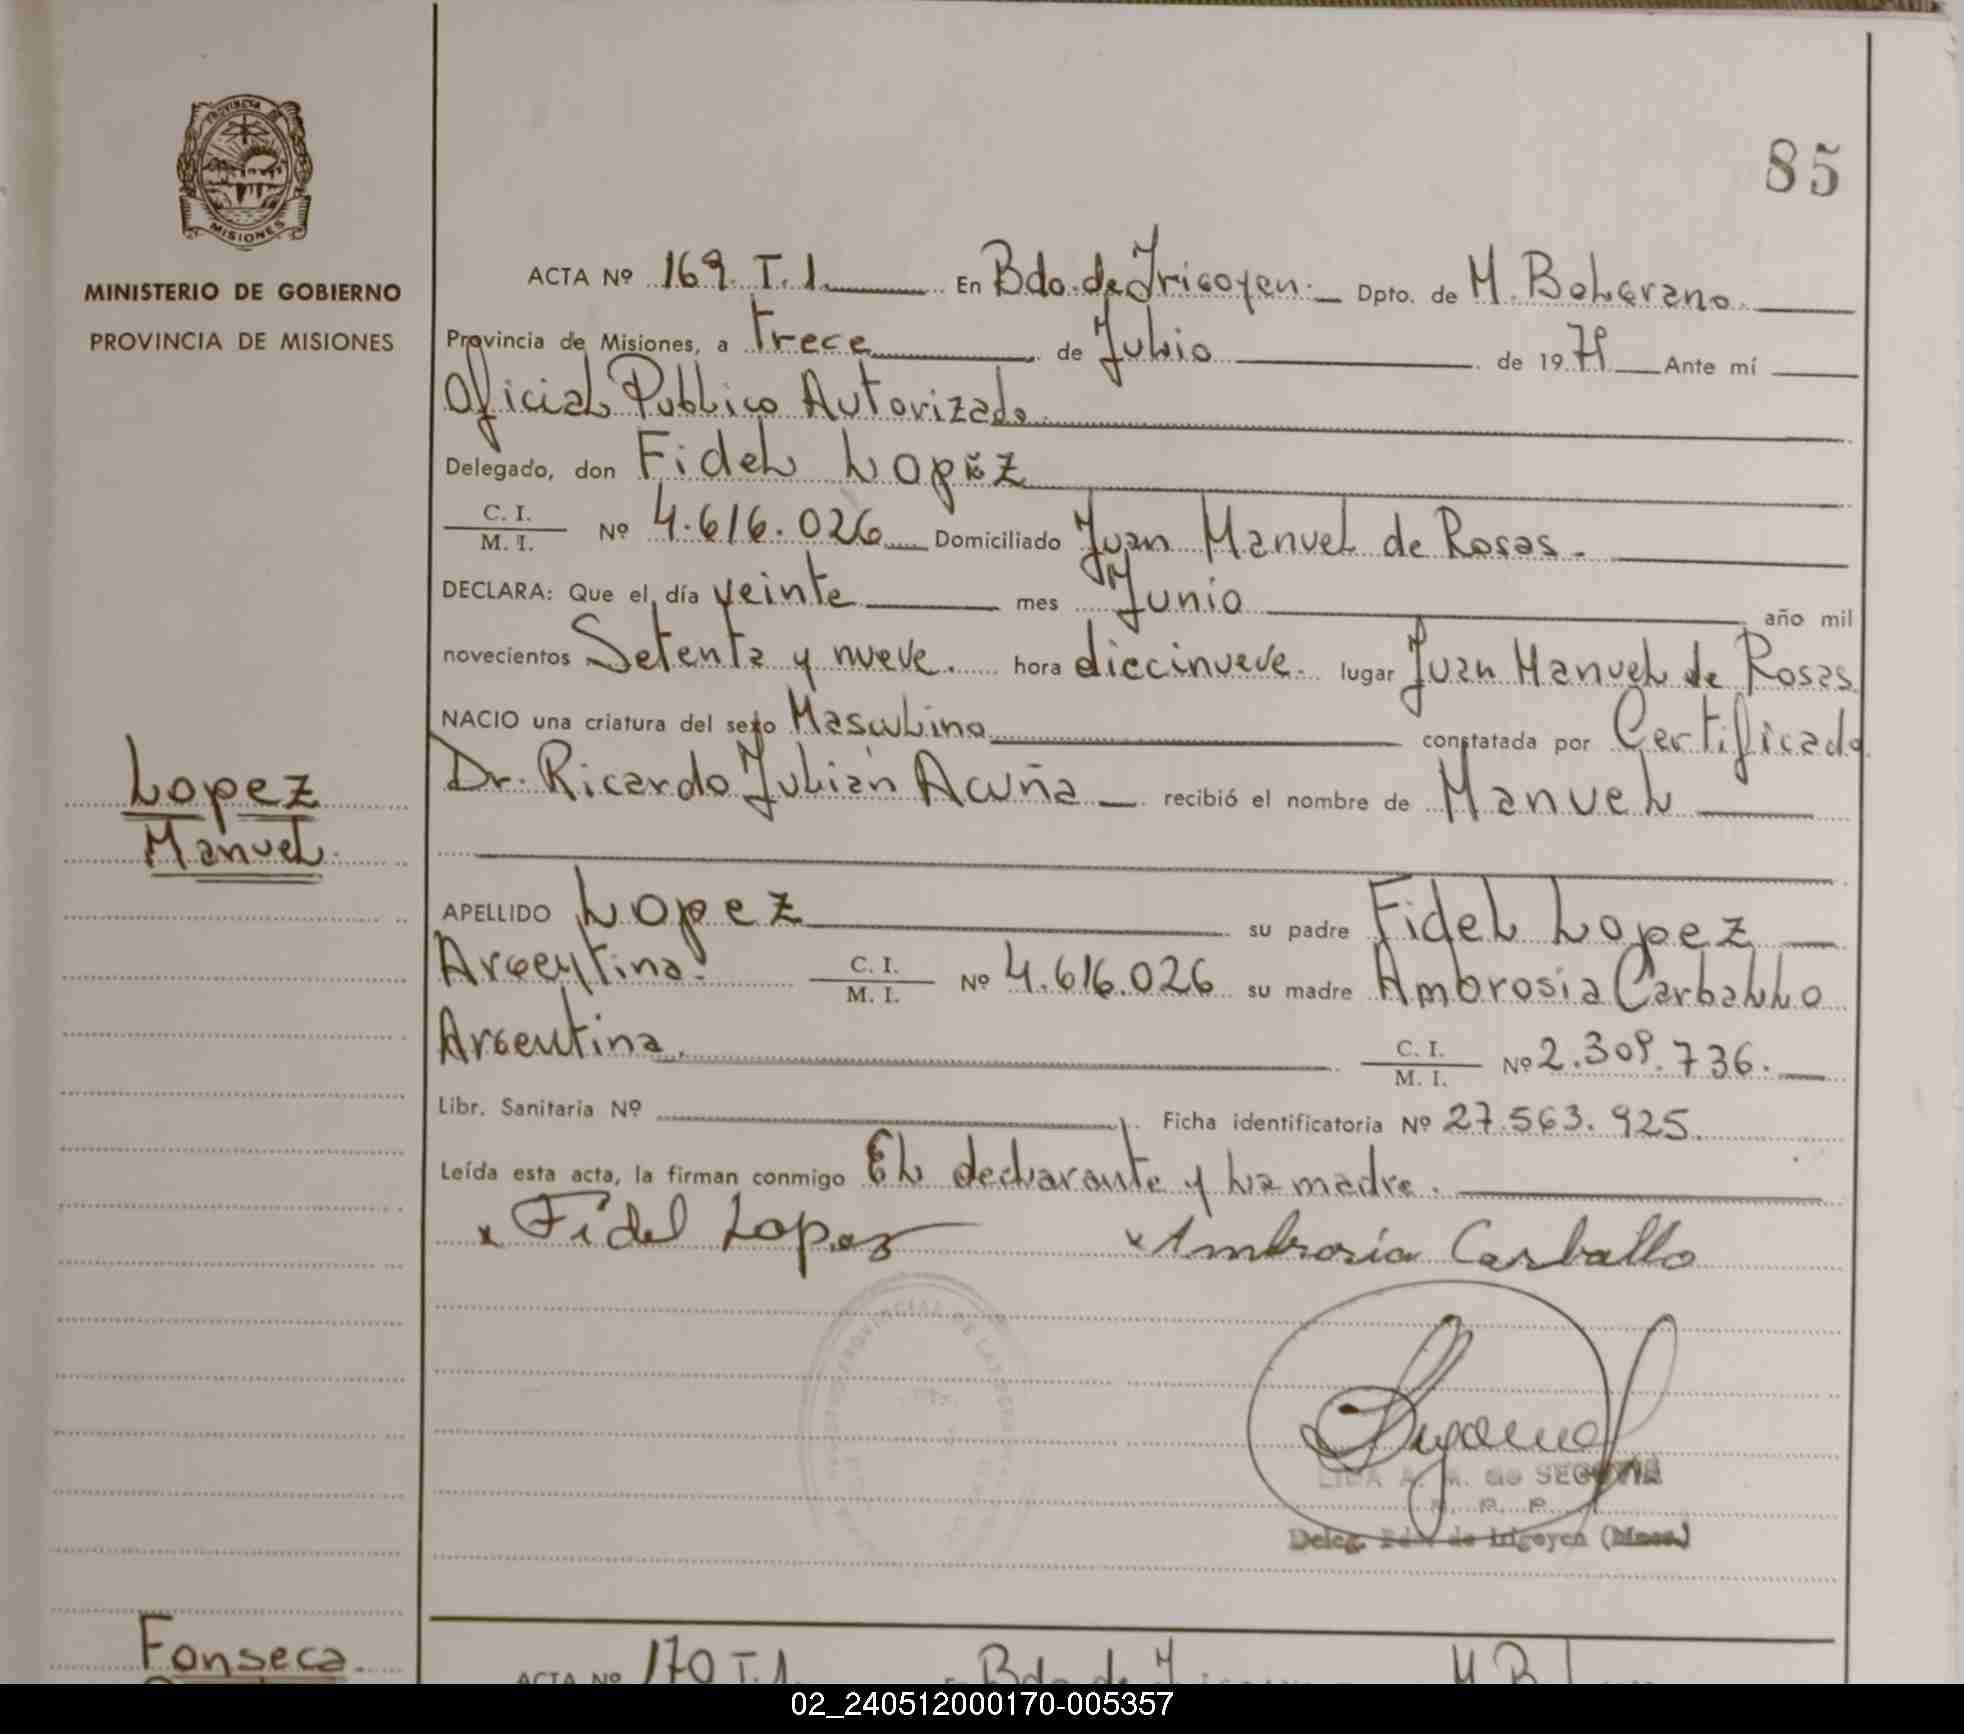 PROVINCIA DE
MISIONES
MINISTERIO DE GOBIERNO
PROVINCIA DE MISIONES
85
ACTA Nº 169. T. 1. En Bdo. de Irigoyen. Dpto. de M. Belgrano.
Provincia de Misiones, a trece de Julio de 1979 Ante mí
Oficial Publico Autorizado.
Delegado, don Fidel Lopez
C. I.
M. I. Nº 4.616.026 Domiciliado Juan Manuel de Rosas.
DECLARA: Que el día veinte mes Junio año mil
novecientos Setenta y nueve. hora diecinueve. lugar Juan Manuel de Rosas
NACIO una criatura del sexo Masculino constatada por Certificado
Dr. Ricardo Julián Acuña recibió el nombre de Manuel
Lopez
Manuel.
APELLIDO Lopez su padre Fidel Lopez
Argentina. C. I.
M. I. Nº 4.616.026 su madre Ambrosia Carballo
Argentina. C. I.
M. I. Nº 2.309.736.
Libr. Sanitaria Nº Ficha identificatoria Nº 27.563.925.
Leída esta acta, la firman conmigo El declarante y la madre.
x Fidel Lopez x Ambrosia Carballo
LIDA A. M. de SEGOVIA
Deleg. Bdo. de Irigoyen (Mnes.)
Fonseca.
ACTA Nº 170 T. 1. En Bdo de
02_240512000170-005357